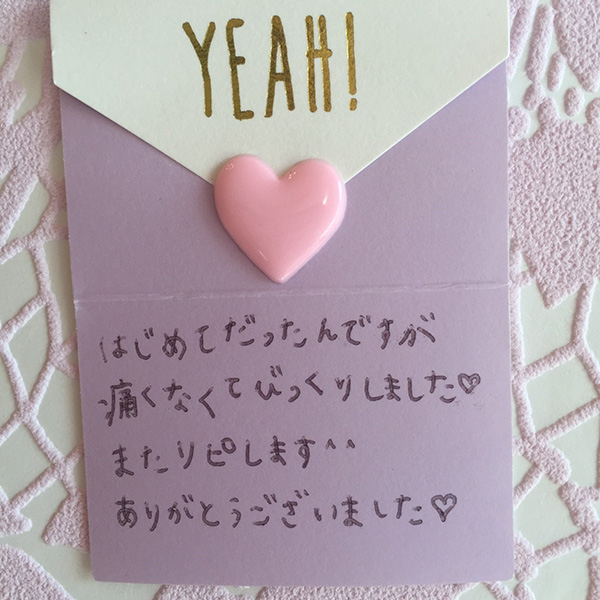 YEAH!
はじめてだったんですが
痛くなくてびっくりしました♡
またリピします^^
ありがとうございました♡